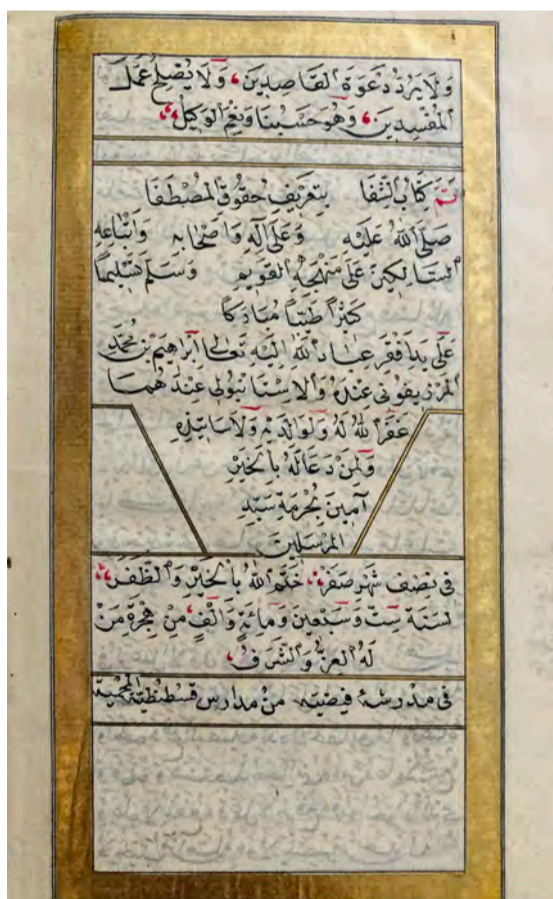 وَلَا يَرُدُّ دَعْوَةَ الْقَاصِدِينَ، وَلَا يُصْلِحُ عَمَلَ
الْمُفْسِدِينَ، وَهُوَ حَسْبُنَا وَنِعْمَ الْوَكِيلُ،
تَمَّ كِتَابُ الشِّفَا بِتَعْرِيفِ حُقُوقِ الْمُصْطَفَا
صَلَّى اللهُ عَلَيْهِ وَعَلَى آلِهِ وَاَصْحَابِهِ وَاَتْبَاعِهِ
السَّالِكِينَ عَلَى مَنْهَجِهِ الْقَوِيمِ وَسَلَّمَ تَسْلِيمًا
كَثِيرًا طَيِّبًا مُبَارَكًا
عَلَى يَدِ اَفْقَرِ عِبَادِ اللهِ اِلَيْهِ تَعَالَى اِبْرَاهِيمَ بْنِ مُحَمَّدٍ
الْمَرْزِيفُونِى وَالاِسْتَانْبُولِى عِنْدَهُمَا
غَفَرَ اللهُ لَهُ وَلِوَالِدَيْهِ وَلِاَسَاتِيذِهِ
وَلِمَنْ دَعَا لَهُ بِالْخَيْرِ
آمِينَ بِحُرْمَةِ سَيِّدِ
الْمُرْسَلِينَ
فِى نِصْفِ شَهْرِ صَفَرْ، خَتَمَ اللهُ بِالْخَيْرِ وَالظَّفَرِ،
لِسَنَةِ سِتٍّ وَسَبْعِينَ وَمِائَةٍ وَاَلْفٍ، مِنْ هِجْرَةِ مَنْ
لَهُ الْعِزُّ وَالشَّرَفُ،
فِى مَدْرَسَهٔ فَيْضِيَّه مِنْ مَدَارِسِ قُسْطَنْطِنِيَّةِ الْمَحْمِيَّة